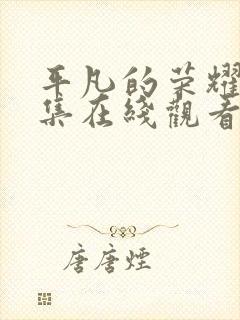 平凡的荣耀
集在綫觀看
唐唐煙